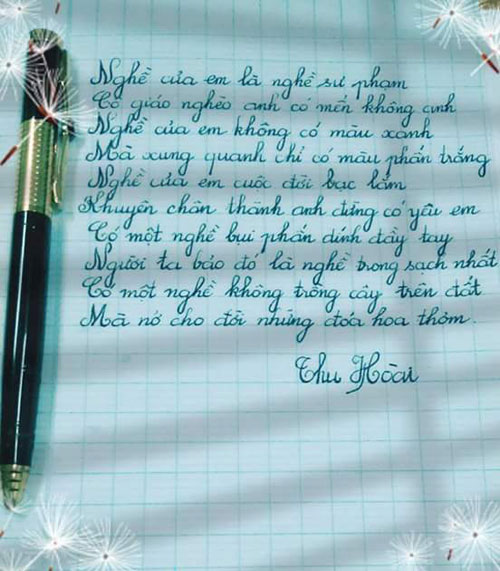 Nghề của em là nghề sư phạm
Cô giáo nghèo anh có mến không anh
Nghề của em không có màu xanh
Mà xung quanh chỉ có màu phấn trắng
Nghề của em cuộc đời bạc lắm
Khuyên chân thành anh đừng có yêu em
Có một nghề bụi phấn dính đầy tay
Người ta bảo đó là nghề trong sạch nhất
Có một nghề không trồng cây trên đất
Mà nở cho đời những đóa hoa thơm.
Thu Hoài